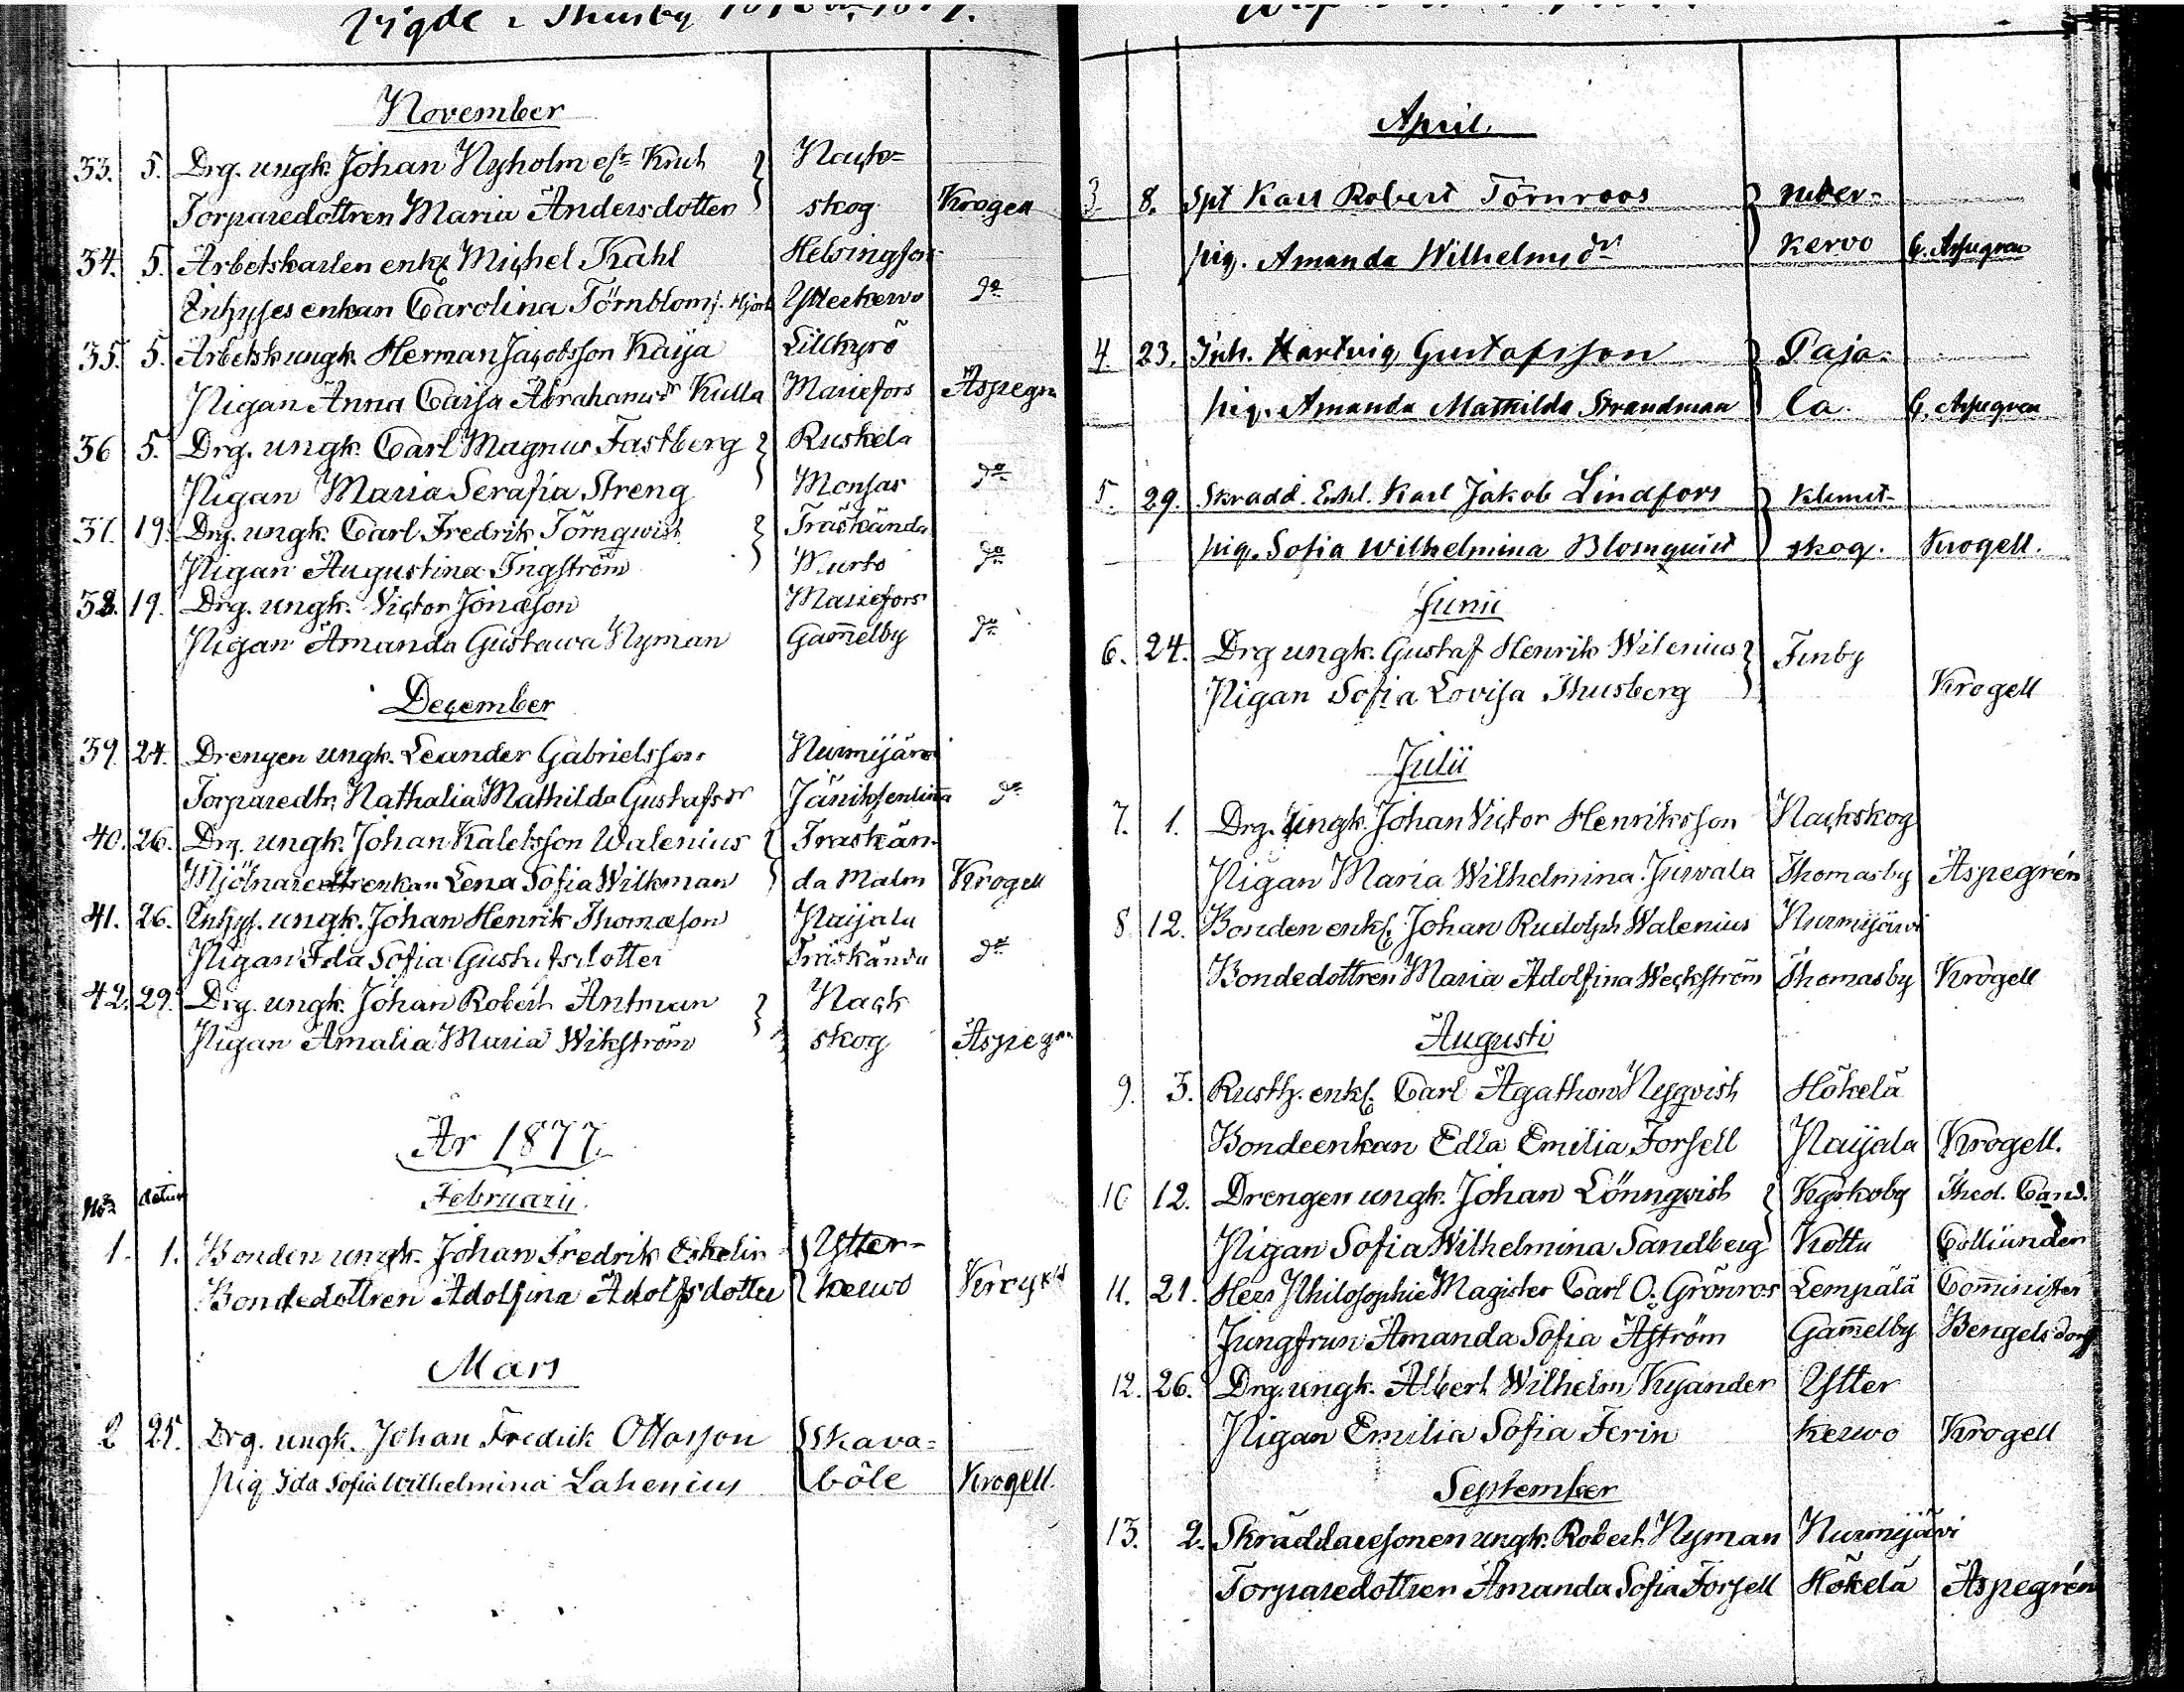 Vigde i Thusby 1876 & 1877.
November
33. 5. Drg. ungk. Johan Nyholm Näck=
Torparedottren Maria Andersdotter skog Krogell
34. 5. Arbetskarlen enkl Michel Kahl Helsingfors
Inhyses enkan Carolina Törnblom f. Ytterkervo do
35. 5. Arbetsk ungk. Herman Jacobsson Kaija Lillkyrö
Pigan Anna Caisa Abrahamsdr Kulla Mariefors Aspegrn
36 5. Drg. ungk. Carl Magnus Fastberg Ruskela
Pigan Maria Serafia Streng Monsas do
37. 19. Drg. ungk. Carl Fredrik Törnqwist Träskända
Pigan Augustina Ingström Murto do
38. 19. Drg. ungk. Victor Jonasson Mariefors
Pigan Amanda Gustawa Nyman Gam̄elby do
December
39. 24. Drengen ungk. Leander Gabrielsson Nurmijärvi
Torparedtr Nathalia Mathilda Gustafsdr do
40. 26. Drg. ungk. Johan Kalebsson Walenius Träskän-
Mjölnareenkan Lena Sofia Wilkman da Malm Krogell
41. 26. Inhys. ungk. Johan Henrik Thomasson Paijala
Pigan Ida Sofia Gustafsdotter Träskända do
42. 29. Drg. ungk. Johan Robert Antman Näck
Pigan Amalia Maria Wikström skog Aspegrn
År 1877.
No datum Februarii.
1. 1. Bonden ungk. Johan Fredrik Eskelin Ytter-
Bondedottren Adolfina Adolfsdotter kerwo Krogell
Mars
2 25. Drg. ungk. Johan Fredrik Ottosson Skava=
Pig Ida Sofia Wilhelmina Lahenius böle Krogell.
April.
3 8. Spt Karl Robert Törnroos
pig. Amanda Wilhelmsdr kervo G. Aspegren
4. 23. Inh. Hartvig Gustafsson Paja=
pig. Amanda Mathilda Strandman la. G. Aspegren
5. 29. Skrädd. Enkl. Karl Jakob Lindfors Klemet-
pig. Sofia Wilhelmina Blomquist skog. Krogell.
Junii
6. 24. Drg ungk. Gustaf Henrik Wilenius Finby
Pigan Sofia Lovisa Thusberg Krogell
Julii
7. 1. Drg. ungk. Johan Victor Henriksson Näckskog
Pigan Maria Wilhelmina Juvala Thomasby Aspegrén
8 12. Bonden enkl. Johan Rudolph Walenius Nurmijärvi
Bondedottren Maria Adolfina Weckström Thomasby Krogell
Augusti
9. 3. Rusth. enkl. Carl Agathon Nyqvist Hökelä
Bondeenkan Edla Emilia Forsell Paijala Krogell.
10 12. Drengen ungk. Johan Lönnqvist Kyrkoby Theol. Cand.
Pigan Sofia Wilhelmina Sandberg Kottu Colliander
11. 21. Herr Philosophie Magister Carl O. Grönroos Lempälä Com̄inister
Jungfrun Amanda Sofia Åström Gam̄elby Bengelsdorff
12. 26. Drg. ungk. Albert Wilhelm Kyander Ytter
Pigan Emilia Sofia Ferin kerwo Krogell
September
13. 2. Skräddaresonen ungk. Robert Nyman Nurmijärvi
Torparedottren Amanda Sofia Forsell Hökelä Aspegrén